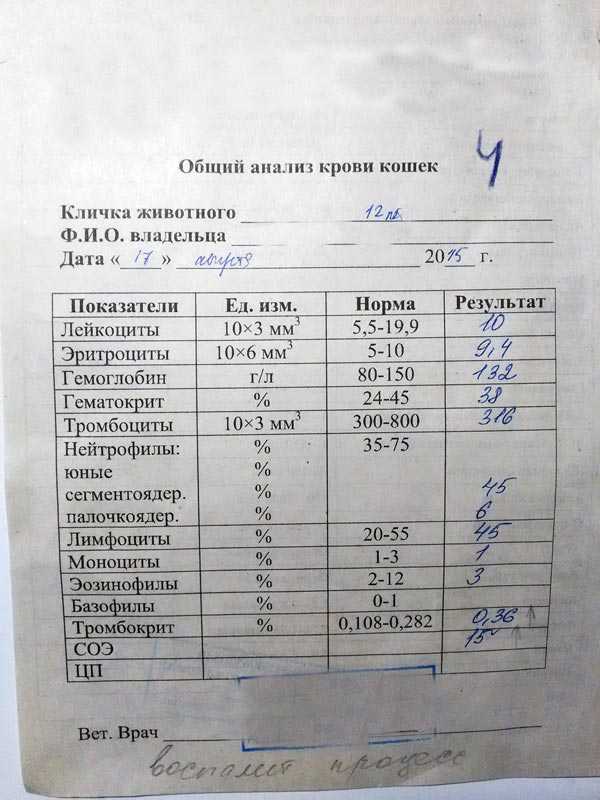 Ч
Общий анализ крови кошек
Кличка животного
Ф.И.О. владельца
Дата «17» августа 2015 г.
Показатели Ед. изм. Норма Результат
Лейкоциты 10×3 мм³ 5,5-19,9 10
Эритроциты 10×6 мм³ 5-10 9,4
Гемоглобин г/л 80-150 132
Гематокрит % 24-45 38
Тромбоциты 10×3 мм³ 300-800 316
Нейтрофилы: % 35-75
юные %
сегментоядер. % 45
палочкоядер. % 6
Лимфоциты % 20-55 45
Моноциты % 1-3 1
Эозинофилы % 2-12 3
Базофилы % 0-1
Тромбокрит % 0,108-0,282 0,36 ↑
СОЭ 15 ↑
ЦП
Вет. Врач
воспалит процесс